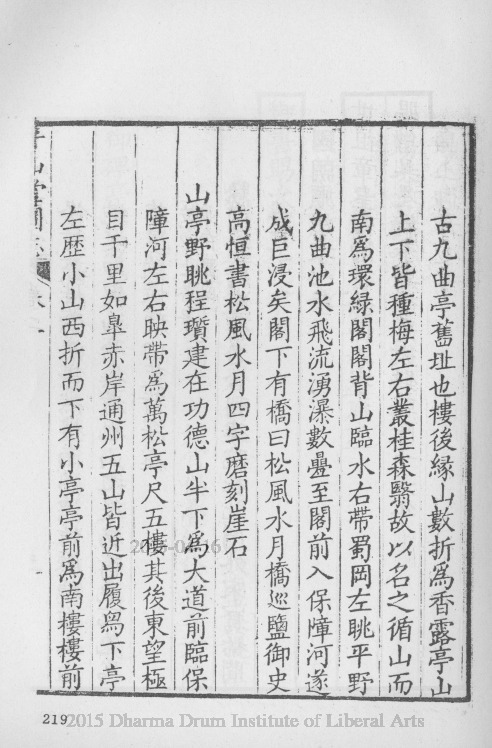 古九曲亭舊址也樓後緣山數折爲香露亭山
上下皆種梅左右叢桂森翳故以名之循山而
南爲環綠閣閣背山臨水右帶蜀岡左眺平野
九曲池水飛流湧瀑數疊至閣前入保障河遂
成巨浸矣閣下有橋曰松風水月橋巡鹽御史
高恒書松風水月四字磨刻崖石
山亭野眺程瓚建在功德山半下爲大道前臨保
障河左右映帶爲萬松亭尺五樓其後東望極
目千里如皋赤岸通州五山皆近出履舄下亭
左歷小山西折而下有小亭亭前爲南樓樓前
山堂圖志
219
2015 Dharma Drum Institute of Liberal Arts